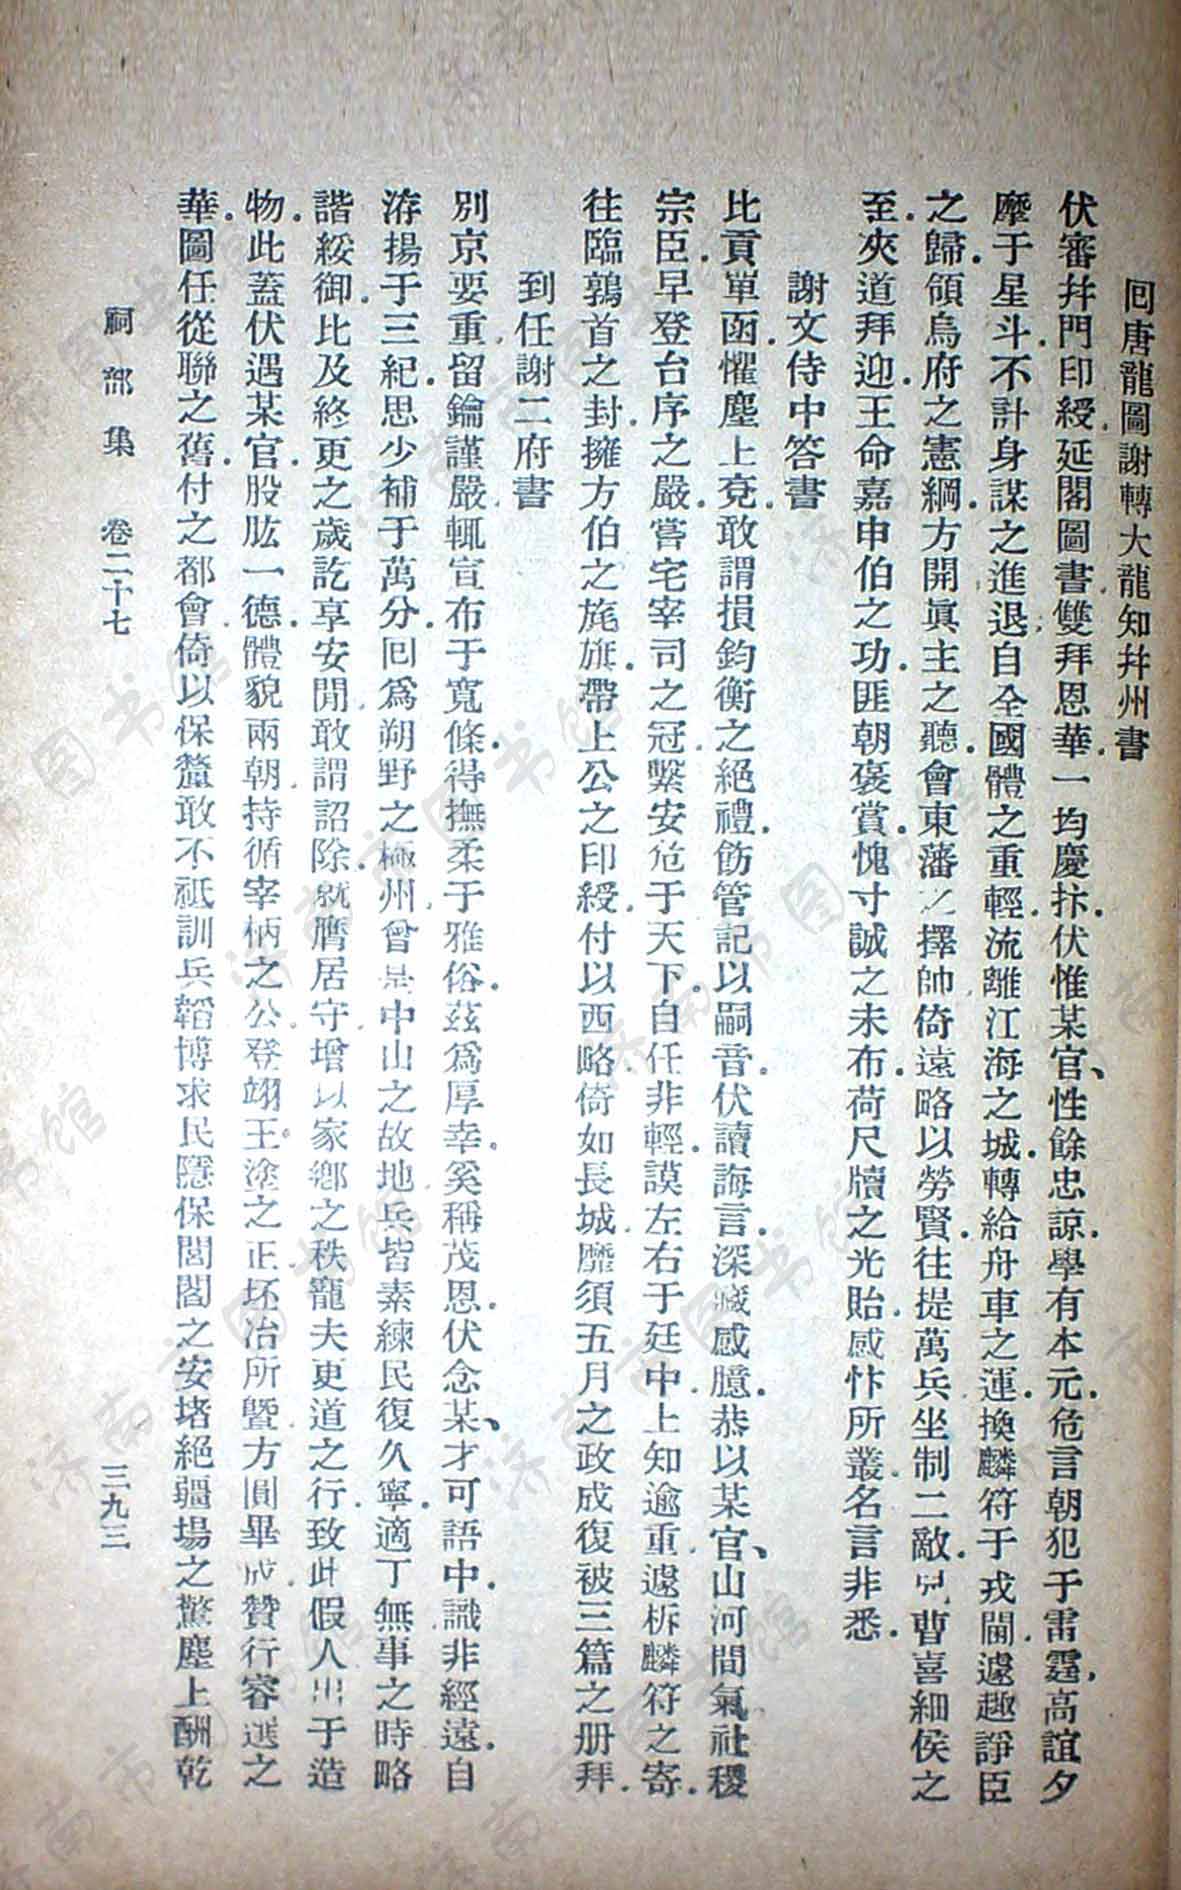 回唐龍圖謝轉大龍知幷州書
伏審幷門印綬.延閣圖書.雙拜恩華.一均慶抃.伏惟某官、性餘忠諒.學有本元.危言朝犯于雷霆.高誼夕
摩于星斗.不計身謀之進退.自全國體之重輕.流離江海之城.轉給舟車之運.換麟符于戎閫.遽趣諍臣
之歸.領烏府之憲綱.方開眞主之聽.會東藩之擇帥.倚遠略以勞賢.往提萬兵.坐制二敵.兒曹喜細侯之
至.夾道拜迎.王命嘉申伯之功.匪朝褒賞.愧寸誠之未布.荷尺牘之光貽.感忭所叢.名言非悉.
謝文侍中答書
比貢單函.懼塵上竞.敢謂損鈞衡之絕禮.飭管記以嗣音.伏讀誨言.深藏感臆.恭以某官、山河間氣.社稷
宗臣.早登台序之嚴.嘗宅宰司之冠.繫安危于天下.自任非輕.謨左右于廷中.上知逾重.遽析麟符之寄.
往臨鶉首之封.擁方伯之旄旂.帶上公之印綬.付以西略.倚如長城.靡須五月之政成.復被三篇之册拜.
到任謝二府書
別京要重.留鑰謹嚴.輒宣布于寬條.得撫柔于雅俗.茲爲厚幸.奚稱茂恩.伏念某、才可語中.識非經遠.自
洊揚于三紀.思少補于萬分.回爲朔野之極州.會是中山之故地.兵皆素練.民復久寧.適丁無事之時.略
諧綏御.比及終更之歲.訖享安閒.敢謂詔除.就膺居守.增以家鄕之秩.寵夫更道之行.致此假人.出于造
物.此蓋伏遇某官.股肱一德.體貌兩朝.持循宰柄之公.登翊王塗之正.坯冶所曁.方圓畢成.贊行容選之
華.圖任從聯之舊.付之都會.倚以保釐.敢不祗訓兵韜.博求民隱.保閭閻之安堵.絕疆場之驚塵.上酬乾
祠部集 卷二十七 三九三